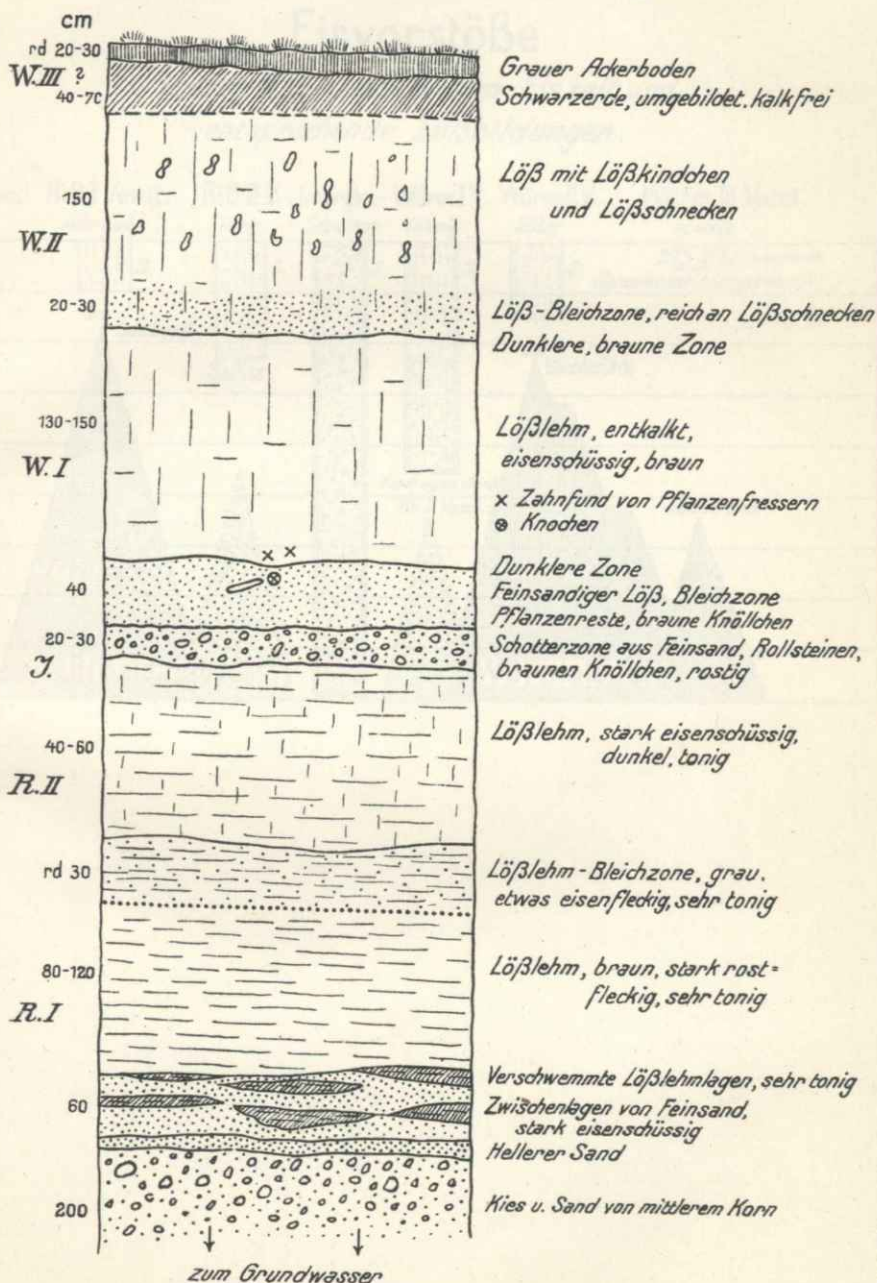 cm
rd 20-30
W.III ?
40-70
Grauer Ackerboden
Schwarzerde, umgebildet, kalkfrei
150
W.II
Löß mit Lößkindchen
und Lößschnecken
20-30
Löß-Bleichzone, reich an Lößschnecken
Dunklere, braune Zone
130-150
W.I
Lößlehm, entkalkt,
eisenschüssig, braun
x Zahnfund von Pflanzenfressern
⊗ Knochen
40
Dunklere Zone
Feinsandiger Löß, Bleichzone
Pflanzenreste, braune Knöllchen
20-30
J.
Schotterzone aus Feinsand, Rollsteinen,
braunen Knöllchen, rostig
40-60
R.II
Lößlehm, stark eisenschüssig,
dunkel, tonig
rd 30
Lößlehm-Bleichzone, grau.
etwas eisenfleckig, sehr tonig
80-120
R.I
Lößlehm, braun, stark rost=
fleckig, sehr tonig
60
Verschwemmte Lößlehmlagen, sehr tonig
Zwischenlagen von Feinsand,
stark eisenschüssig
Hellerer Sand
200
Kies u. Sand von mittlerem Korn
zum Grundwasser
Eisvorstöße